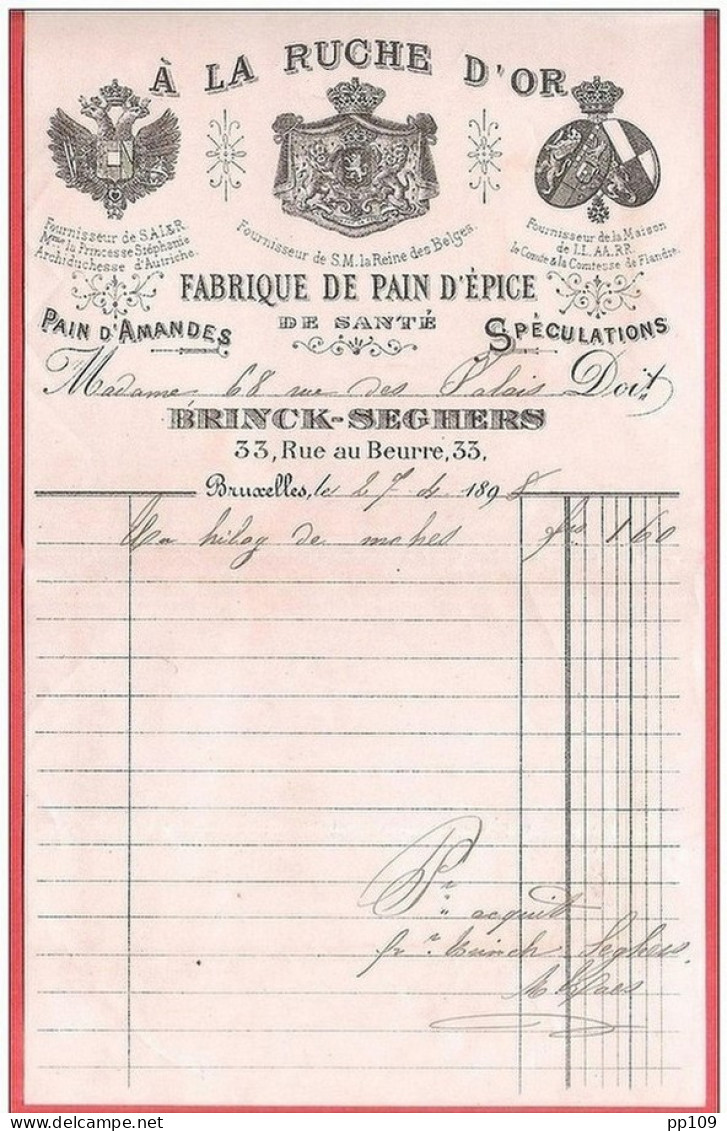 À LA RUCHE D'OR
Fournisseur de S.A.I.&R.
Mme la Princesse Stéphanie
Archiduchesse d'Autriche.
Fournisseur de S.M. la Reine des Belges.
Fournisseur de la Maison
de LL.AA.RR.
le Comte & la Comtesse de Flandre.
FABRIQUE DE PAIN D'ÉPICE
DE SANTÉ
PAIN D'AMANDES
SPÉCULATIONS
Madame 68 rue des Palais Doit
BRINCK-SEGHERS
33, Rue au Beurre, 33.
Bruxelles, le 27 4 1898
de frs 1.60
Pr acquit
pr Brinck Seghers
pp109